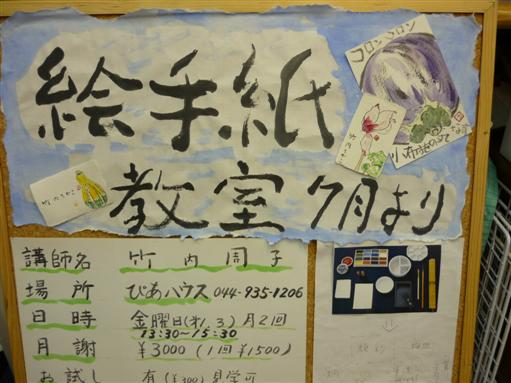 絵手紙
教室 7月より
コロンコロン
講師名 竹内周子
場所 ぴあハウス 044-935-1206
日時 金曜日(オ1.3)月2回
13:30~15:30
月謝 ¥3000(1回¥1500)
お試し 有(¥300)見学可